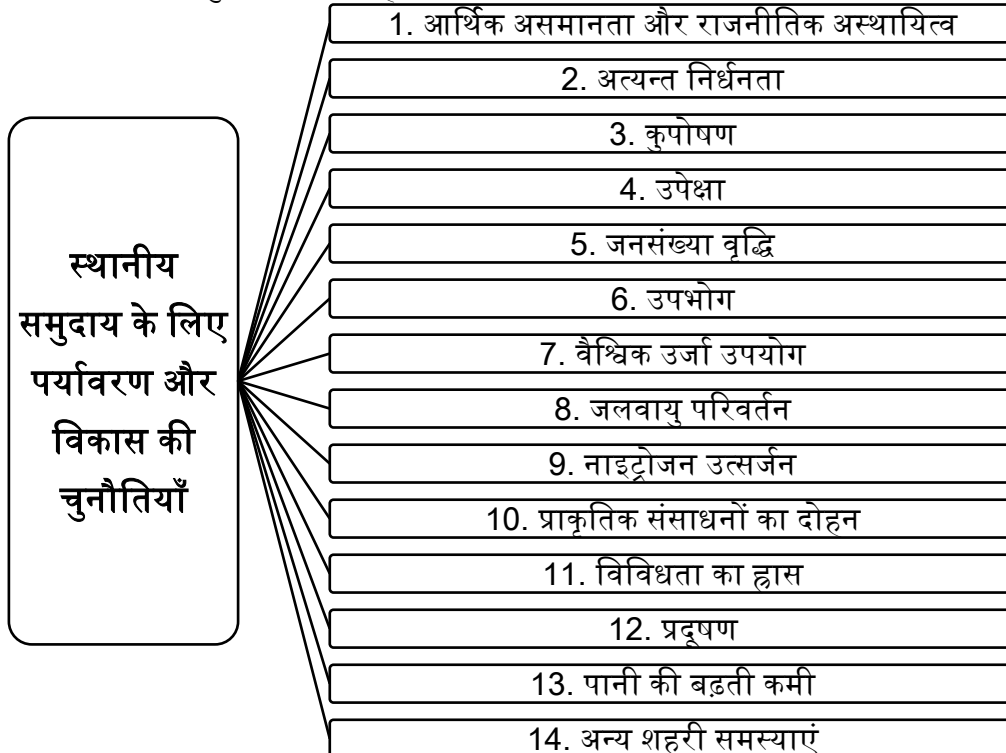 स्थानीय
समुदाय के लिए
पर्यावरण और
विकास की
चुनौतियाँ
1. आर्थिक असमानता और राजनीतिक अस्थायित्व
2. अत्यन्त निर्धनता
3. कुपोषण
4. उपेक्षा
5. जनसंख्या वृद्धि
6. उपभोग
7. वैश्विक उर्जा उपयोग
8. जलवायु परिवर्तन
9. नाइट्रोजन उत्सर्जन
10. प्राकृतिक संसाधनों का दोहन
11. विविधता का ह्रास
12. प्रदूषण
13. पानी की बढ़ती कमी
14. अन्य शहरी समस्याएं